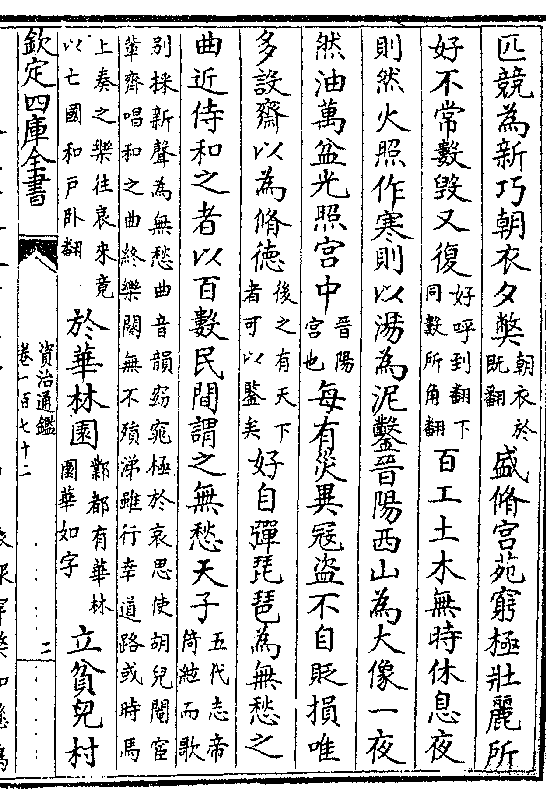 匹競為新巧朝衣夕弊朝衣於既翻盛脩宫苑窮極壯麗所
好不常數毀又復好呼到翻下同數所角翻百工土木無時休息夜
則然火照作寒則以湯為泥鑿晉陽西山為大像一夜
然油萬盆光照宫中晉陽宫也每有災異寇盜不自貶損唯
多設齋以為脩德後之有天下者可以鑒矣好自彈琵琶為無愁之
曲近侍和之者以百數民間謂之無愁天子五代志帝倚絃而歌
别採新聲為無愁曲音韻窈窕極於哀思使胡兒閹宦
輩齊唱和之曲終樂闋無不殞涕雖行幸道路或時馬
上奏之樂往哀來竟
以亡國和戶卧翻於華林園鄴都有華林園華如字立貧兒村
欽定四庫全書
資治通鑑
卷一百七十二
二